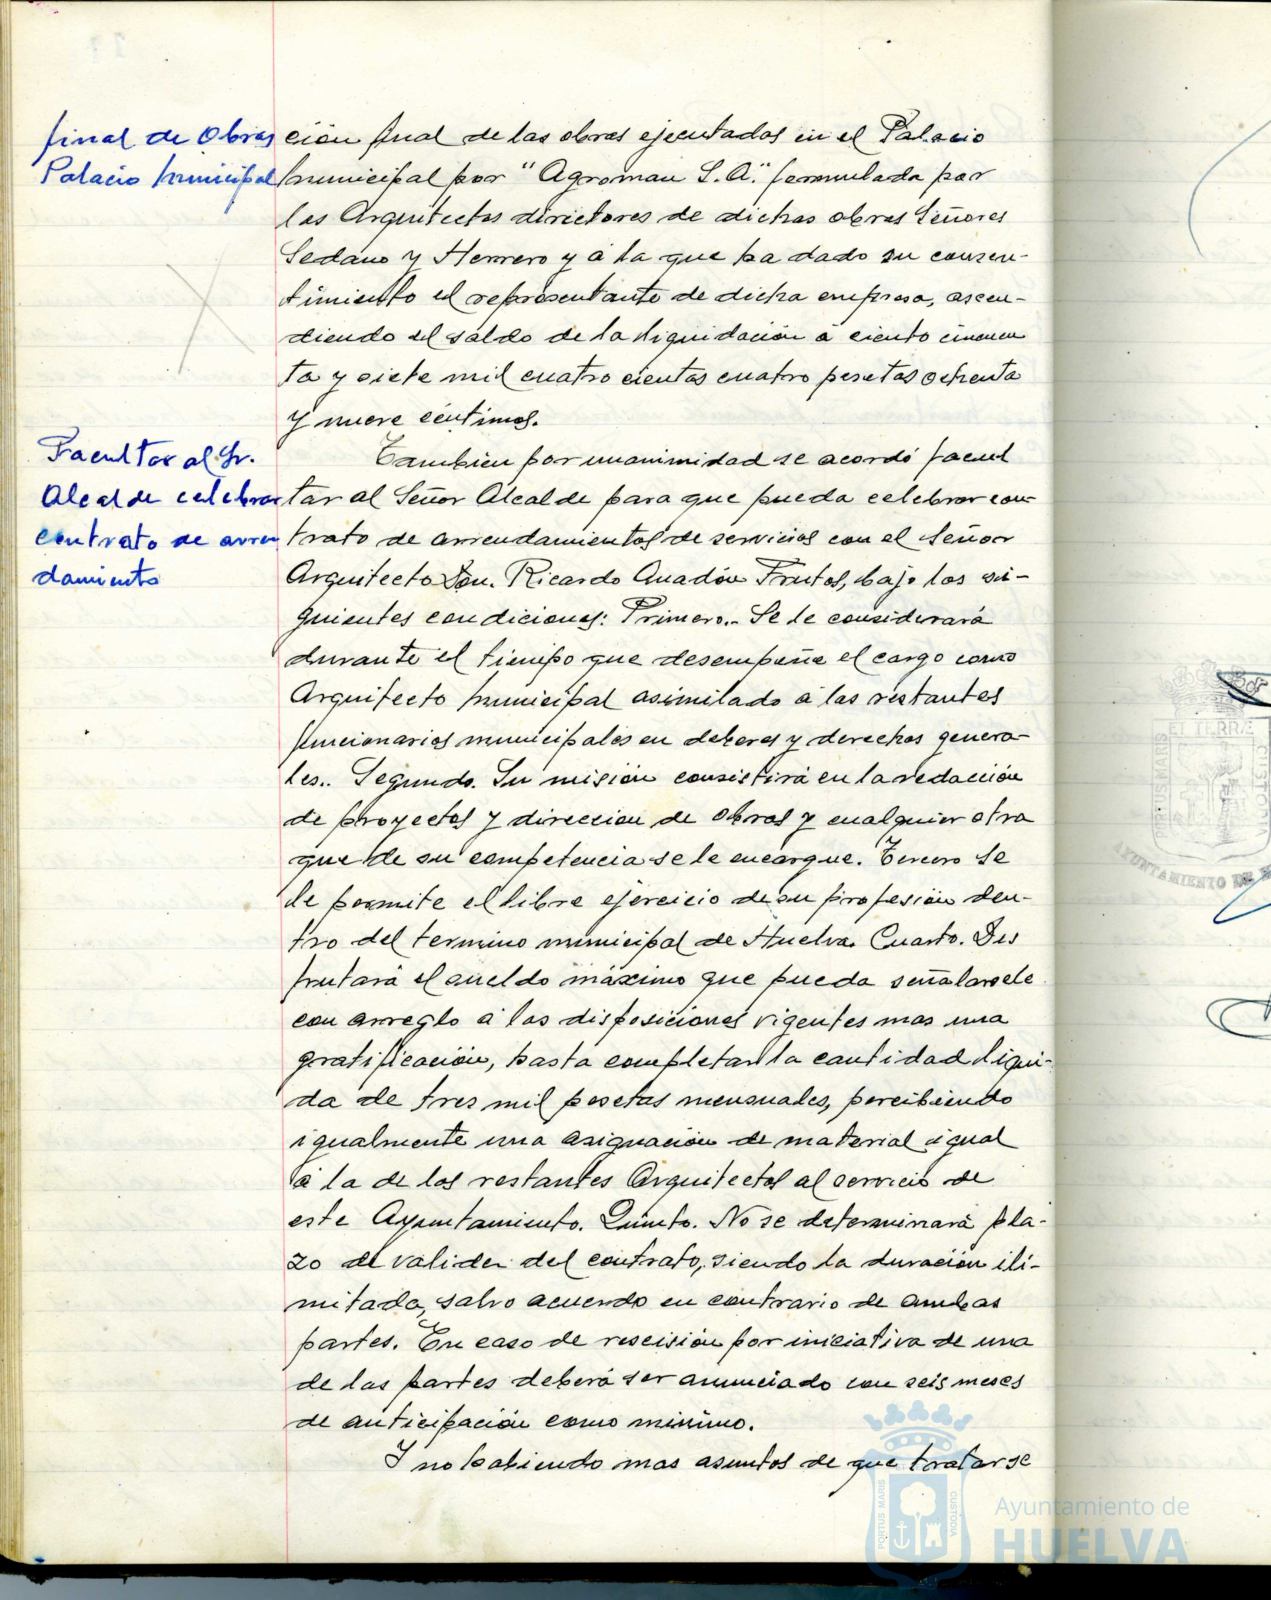 final de Obras
Palacio Municipal
ción final de las obras ejecutadas en el Palacio
Municipal por "Agroman S.A." formulada por
los Arquitectos directores de dichas obras Señores
Sedano y Herrero y á la que ha dado su consen-
timiento el representante de dicha empresa, ascen-
diendo el saldo de la liquidación á ciento cincuen
ta y siete mil cuatro cientas cuatro pesetas ochenta
y nueve céntimos.
Facultar al Sr.
Alcalde celebrar
contrato de arren
damiento
Tambien por unanimidad se acordó facul
tar al Señor Alcalde para que pueda celebrar con-
trato de arrendamientos de servicios con el Señor
Arquitecto Don. Ricardo Anadón Frutos, bajo las si-
guientes condiciones: Primero.- Se le considerará
durante el tiempo que desempeñe el cargo como
Arquitecto Municipal asimilado á los restantes
funcionarios municipales en deberes y derechos genera-
les.. Segundo. Su misión consistirá en la redacción
de proyectos y direccion de obras y cualquier otra
que de su competencia se le encargue. Tercero Se
le permite el libre ejercicio de su profesión den-
tro del termino municipal de Huelva. Cuarto. Dis
frutará el sueldo máximo que pueda señalarsele
con arreglo á las disposiciones vigentes mas una
gratificación, hasta completar la cantidad liqui-
da de tres mil pesetas mensuales, percibiendo
igualmente una asignación de material igual
á la de los restantes Arquitectos al servicio de
este Ayuntamiento. Quinto. No se determinará pla-
zo de validez del contrato, siendo la duración ili-
mitada, salvo acuerdo en contrario de ambas
partes. En caso de rescisión por iniciativa de una
de las partes deberá ser anunciado con seis meses
de anticipación como minimo.
Y no habiendo mas asuntos de que tratarse
ET TERRÆ
AYUNTAMIENTO DE
PORTUS MARIS
CUSTODIA
Ayuntamiento de
HUELVA